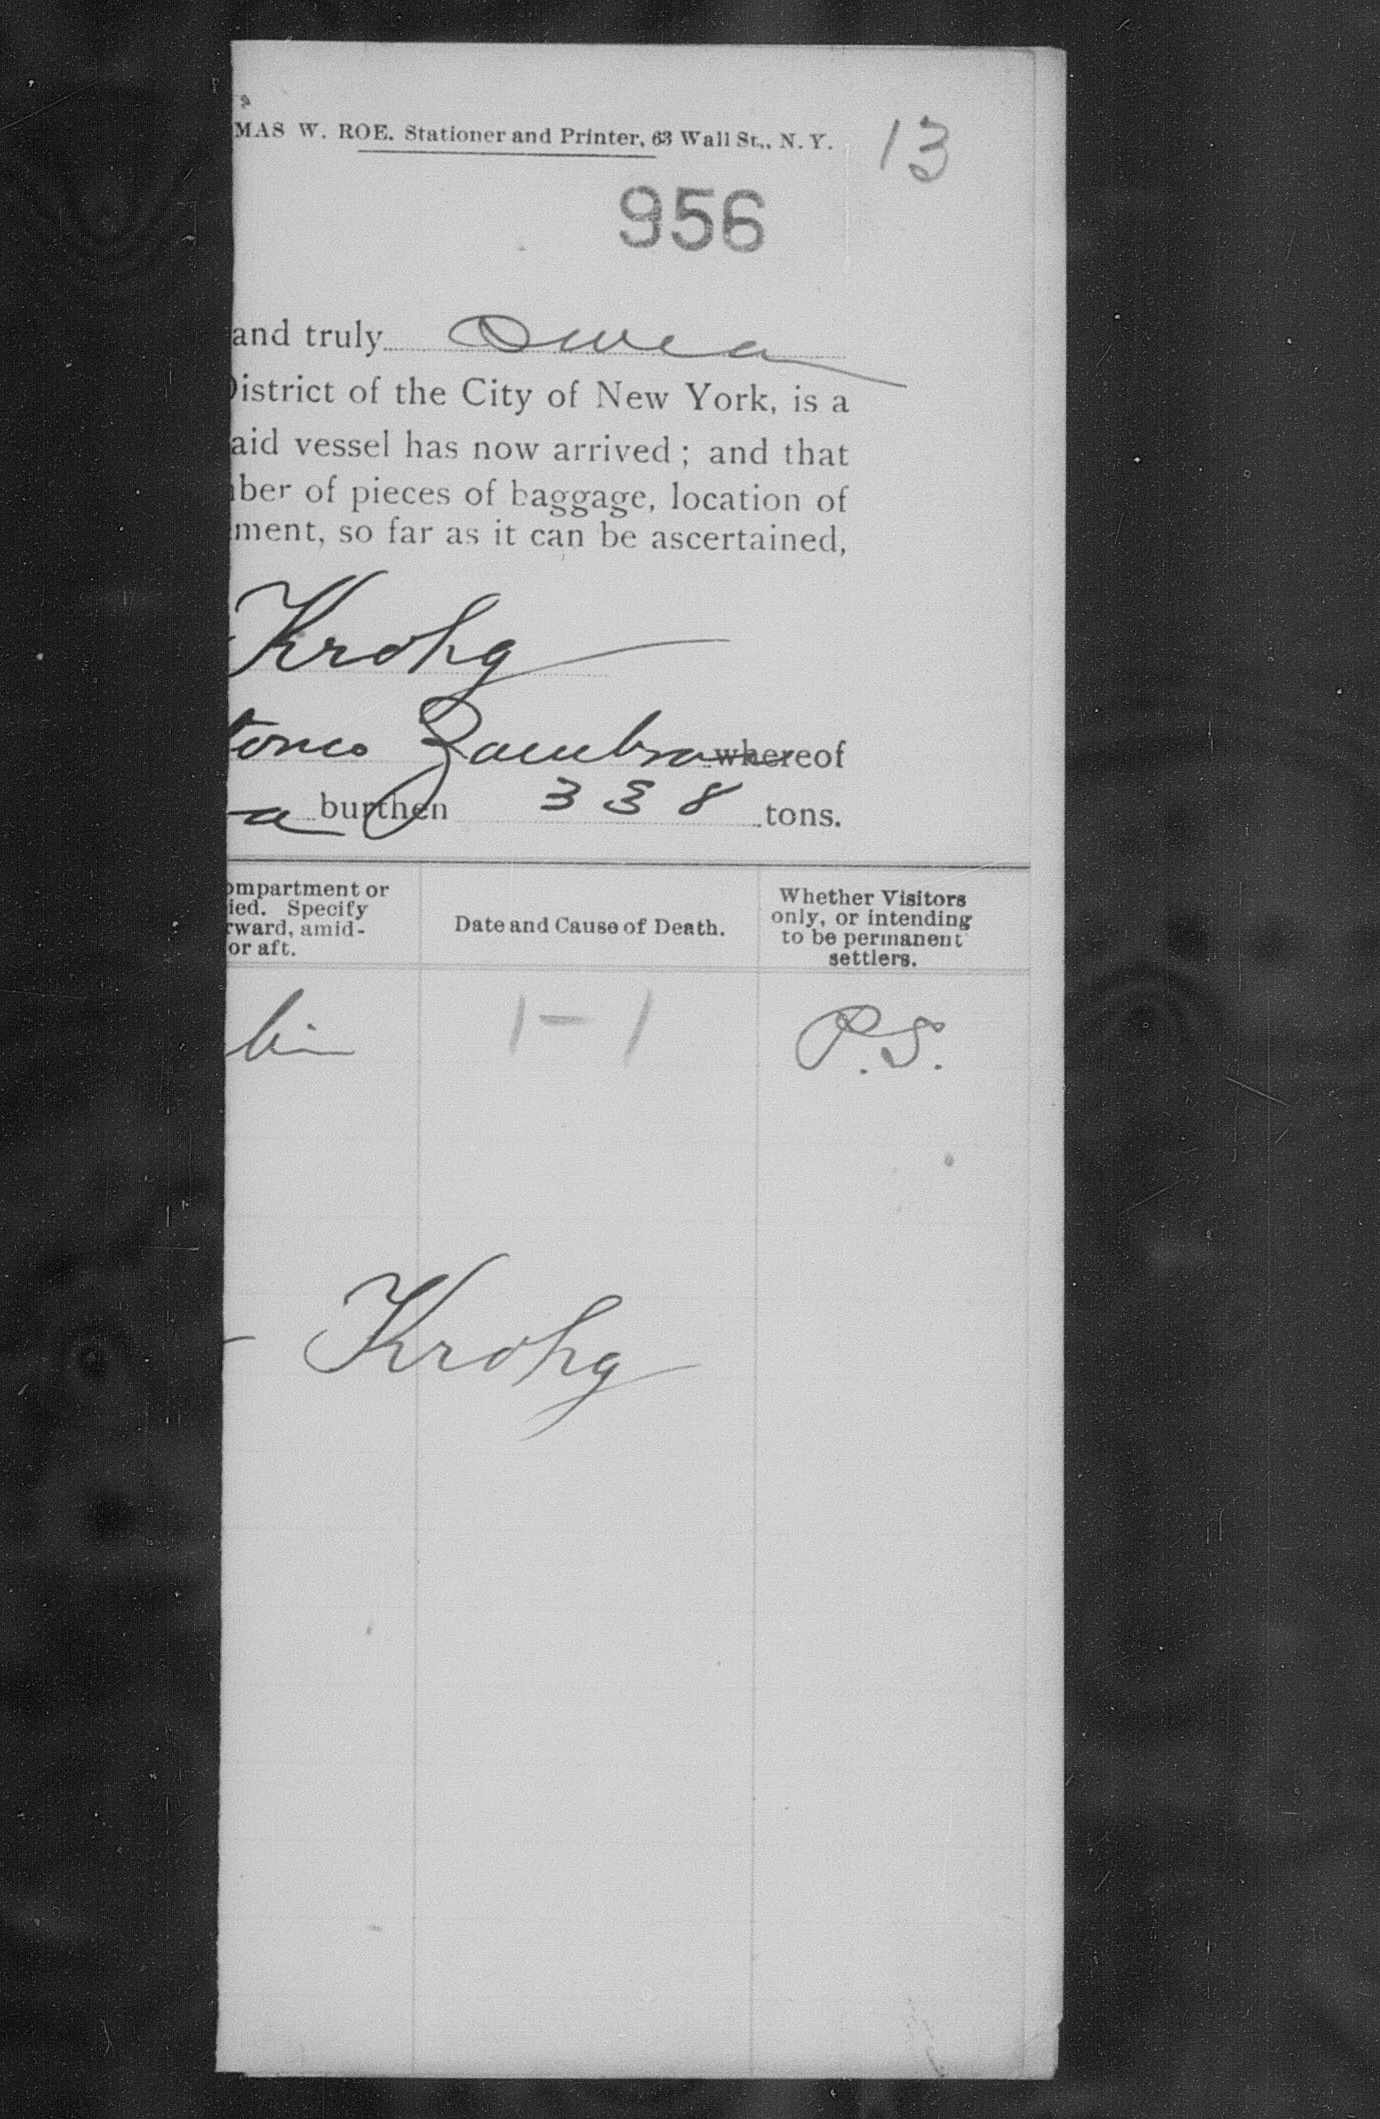 MAS W. ROE. Stationer and Printer, 63 Wall St., N. Y.
13
956
and truly swea
District of the City of New York, is a
aid vessel has now arrived; and that
ber of pieces of baggage, location of
ment, so far as it can be ascertained,
Krohg
tonio Zambra whereof
a burthen 338 tons.
ompartment or
ied. Specify
rward, amid-
or aft.
Date and Cause of Death.
Whether Visitors
only, or intending
to be permanent
settlers.
bin 1-1 P.S.
Krohg